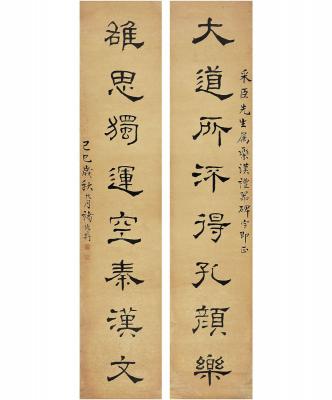 大道所得孔顏樂
采臣先生属集漢禮器碑字即正
雄思獨運空秦漢文
己巳歲秋九月褚德彝